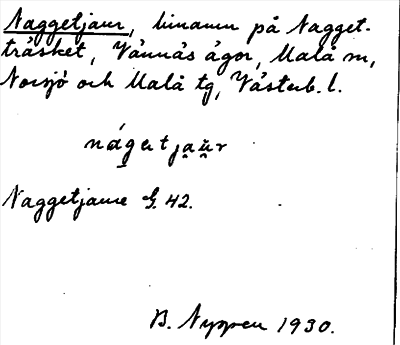 Naggetjaur, binamn på Nagget-
träsket, Vännäs ägor, Malå sn,
Norsjö och Malå tg, Västerb. l.
Naggetjaure G. 42.
B. Nyppen 1930.